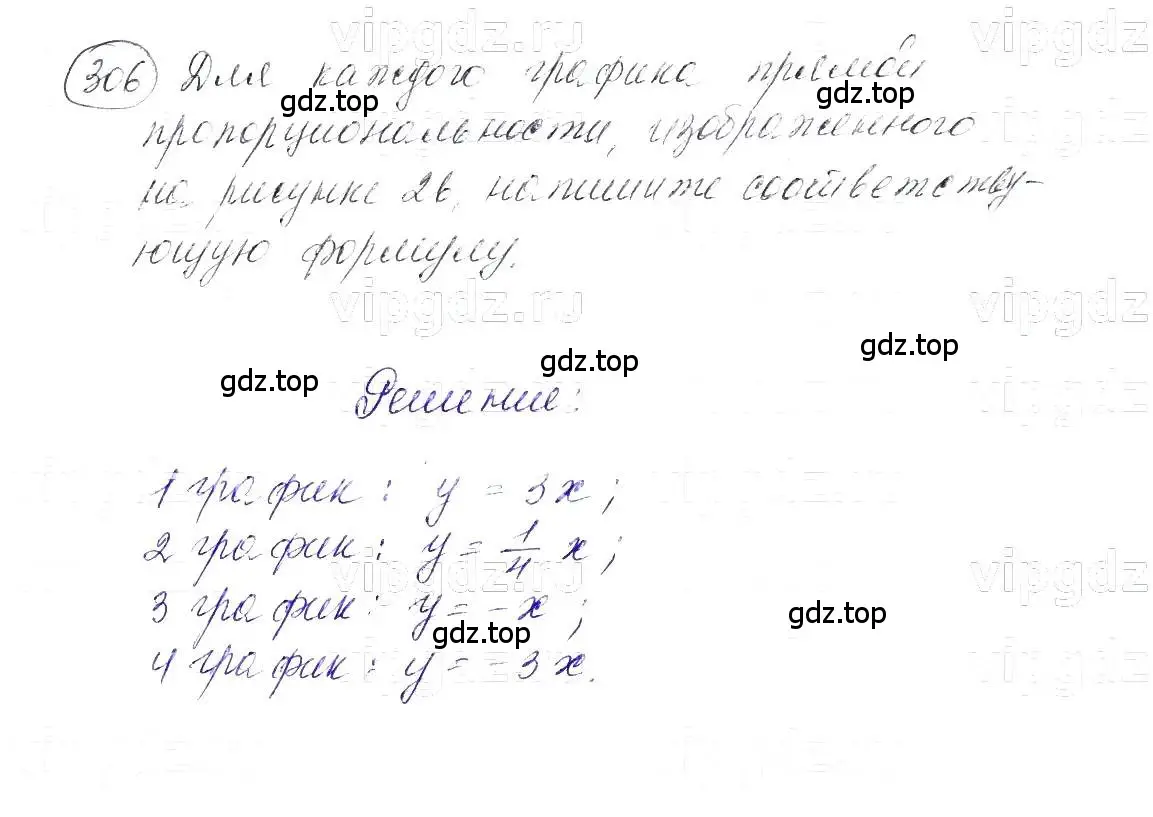 vipgdz.ru vipgdz
306 Для каждого графика прямой
gdz.top gdz.top
пропорциональности, изображенного
на рисунке 26, напишите соответству-
ющую формулу.
vipgdz.ru vipgdz
gdz.top gdz.top gdz.top
Решение:
1 график: y = 3x;
2 график: y = 1/4 x;
vipgdz.ru vipgdz
3 график: y = -x;
gdz.top gdz.top
4 график: y = -3x.
vipgdz